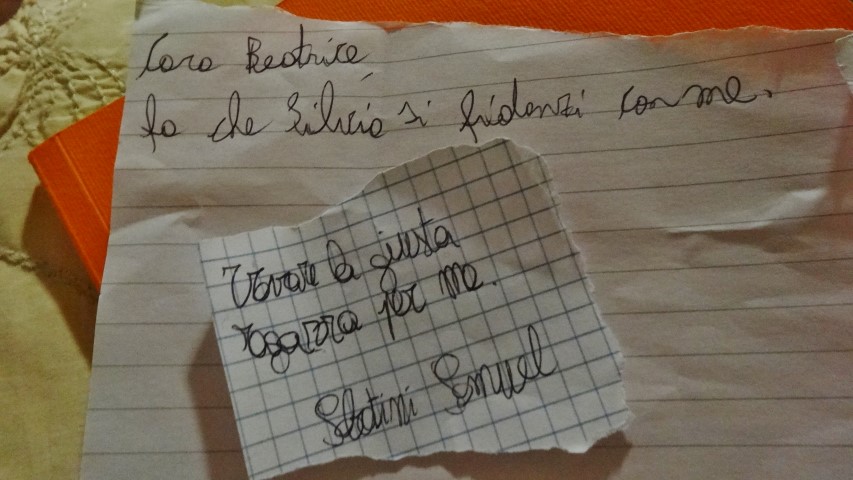 Cara Beatrice,
fa che Silvio si fidanzi con me.
Trovare la giusta
ragazza per me.
Samuel